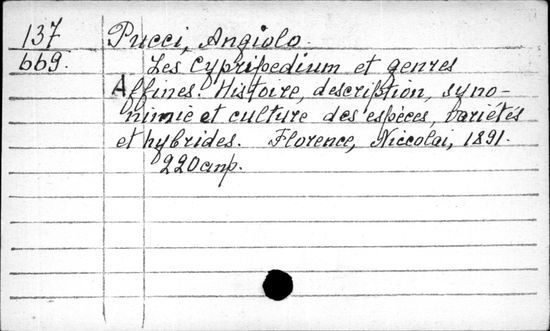 137 Pucci, Angiolo.
669. Les Cypripedium et genres
Affines. Histoire, description, syno-
nimie et culture des espèces, variétés
et hybrides. Florence, Niccolai, 1891.
220 p.